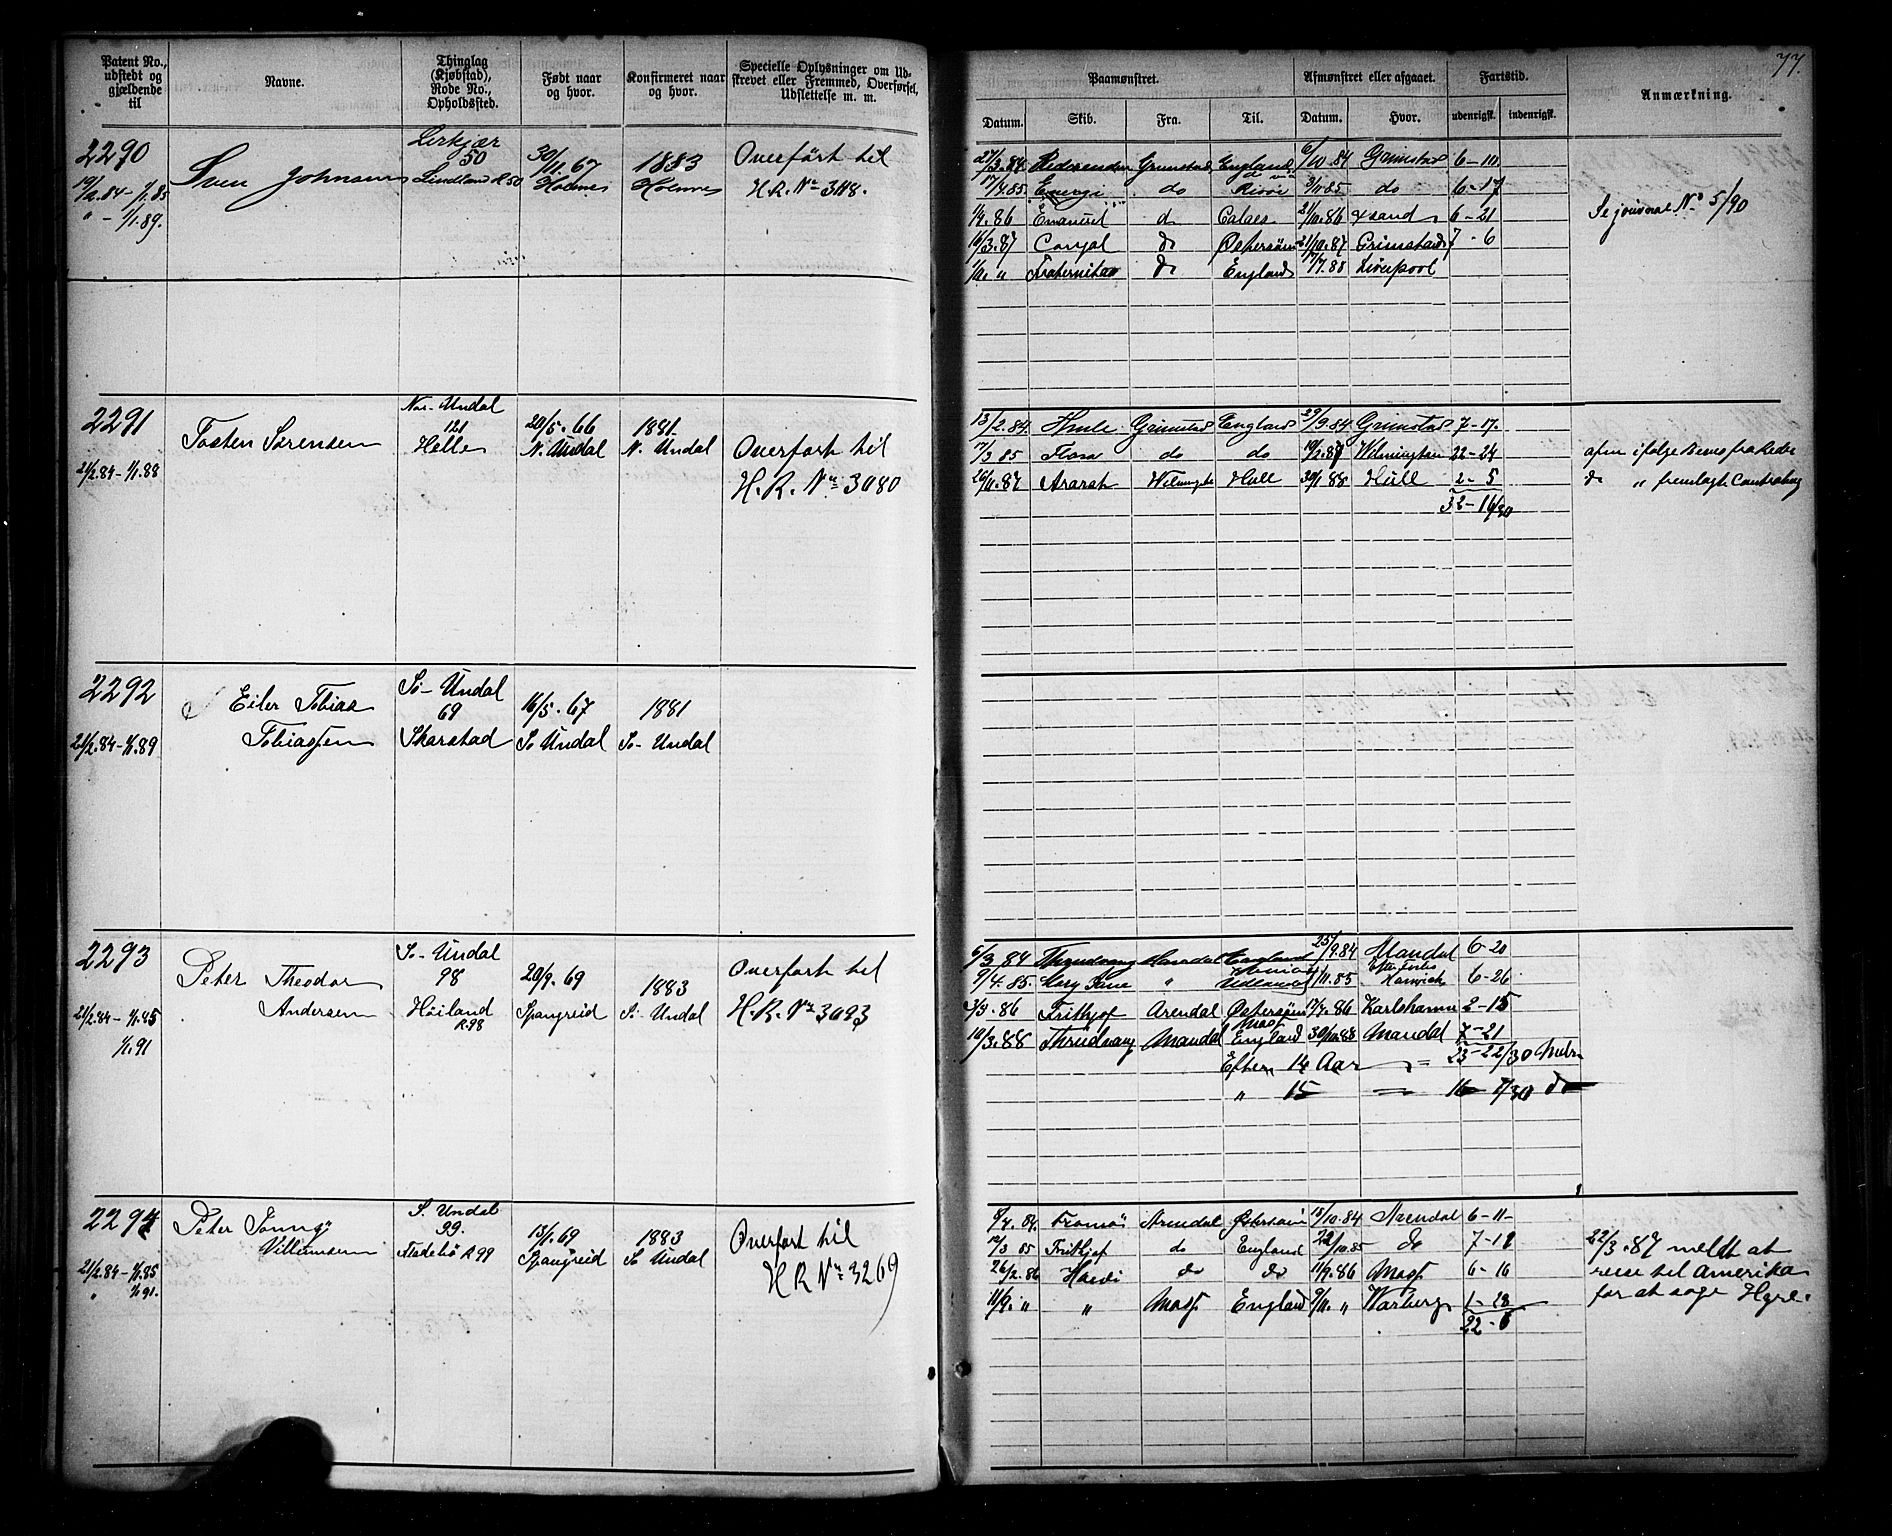 77.
Patent No., udstedt og gjældende til
Navne.
Thinglag (Kjøbstad), Rode No., Opholdssted.
Født naar og hvor.
Konfirmeret naar og hvor.
Specielle Oplysninger om Udskrevet eller Fremmed, Overførsel, Udslettelse m. m.
Paamønstret.
Afmønstret eller afgaaet.
Fartstid.
Anmærkning.
Datum. Skib. Fra. Til. Datum. Hvor. udenrigsk. indenrigsk.
2290
19/2.84 – 1/1.85
" – 1/1.89.
Sven Johnsen
50
Lindland R 50
30/11.67
Holmes
1883
Holmes
Overført til
H.R. No 3118.
27/3.84 Grimstad England 6/10 84 Grimstad 6-10
17/4.85 Energi do 3/11 85 do 6-17
1/4.86 Emanuel d Calais 21/10.86 6-21
16/3.87 do Østersøen 21/10.87 Grimstad 7-6
1/11. " Fraternitas do England 17/7.88 Liverpool
Se journal No 5/90
2291
21/2.84 – 1/1.88
Tosten Sørensen
Nor-Undal
121
Helle
20/5.66
N. Undal
1881.
N. Undal
Overført til
H.R. No 3080
13/2.84 Grimstad England 29/9.84 Grimstad 7-17.
17/3 85 Flora do do 19/2.87 Wilmington 22-24
26/11.87 Ararat Wilmingt Hull 30/1 88 Hull 2-5
32-16/30
afm ifølge
do " fremlagt
2292
21/2.84 – 1/1.89
Eiler Tobias
Tobiassen
Sø-Undal
69
Skarstad
16/5.67
Sø Undal
1881
Sø-Undal
2293
21/2.84 – 1/1.85
1/1.91
Peter Theodor
Andersen
Sø-Undal
98
Høiland
R.98
20/9.69
Spangreid
1883
Sø Undal
Overført til
H.R. No 3093
6/3 84 Thrudvang Mandal England 25/9.84 Mandal 6-20
9/4.85. Mary Jane " 11.85. Harwich 6-26
3/3.86 Frithjof Arendal Østersøen 17/7.86 Karlshamn 2-15
10/3.88 Thrudvang Mandal England 30/10.88 Mandal 7-21
23-22/30
Efter 14 Aar
" 15 16 7/30 do
2294
21/2.84 – 1/1.85
" 1/1 91.
Peter
Villumsen
S. Undal
99.
R 99
13/1.69
Spangreid
1883
Sø Undal
Overført til
H R No 3269
8/4.84. Framnæs Arendal Østersøen 15/10.84 Arendal 6-11-
12/3 85 Frithjof do England 22/10.85 do 7-11
26/2.86 do do 11/9.86 Moss 6-16
11/9. " " Moss England 9/11. " Warberg 1-28
22-6
22/3.87 meldt at
reise til Amerika
for at søge Hyre.